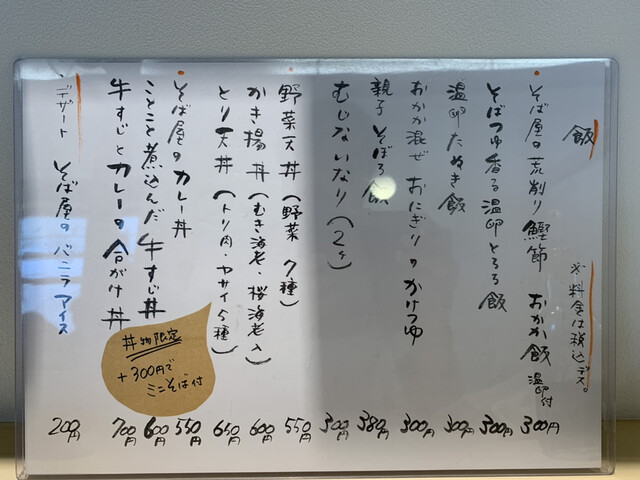 飯
※料金は税込デス。
そば屋の荒削り鰹節 おかか飯 温卵付 300円
そばつゆ香る温卵とろろ飯 300円
温卵たぬき飯 300円
おかか混ぜおにぎりのかけつゆ 300円
親子そぼろ飯 380円
むじないなり(2ヶ) 300円
野菜天丼(野菜7種) 550円
かき揚丼(むき海老・桜海老入) 600円
とり天丼(トリ肉・ヤサイ5種) 650円
そば屋のカレー丼 550円
ことこと煮込んだ牛すじ丼 600円
牛すじとカレーの合がけ丼 700円
丼物限定
+300円で
ミニそば付
デザート そば屋のバニラアイス 200円